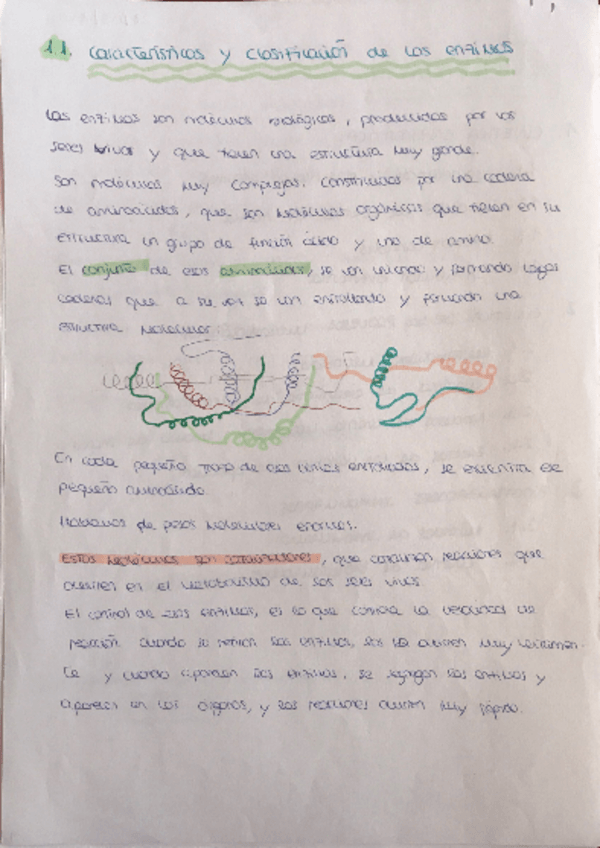 1.1. Características y clasificación de las enzimas
Las enzimas son moléculas biológicas, producidas por los
seres vivos y que tienen una estructura muy grande.
Son moléculas muy complejas, constituidas por una cadena
de aminoácidos, que son moléculas orgánicas que tienen en su
estructura un grupo de función ácido y uno de amino.
El conjunto de esos aminoácidos, se van uniendo y formando largas
cadenas que a su vez se van enrollando y forman una
estructura molecular.
En cada pequeño trozo de esas enrolladas, se encuentra ese
pequeño aminoácido.
Hablamos de pesos moleculares enormes.
Estas moléculas son, que reacciones que
ocurren en el metabolismo de los seres vivos.
El control de las enzimas, es lo que controla la velocidad de
reacción cuando se retiran las enzimas, ocurren muy lentamen-
te y cuando aparecen las enzimas, se las enzimas y
aparecen en los órganos, y las reacciones ocurren muy rápido.